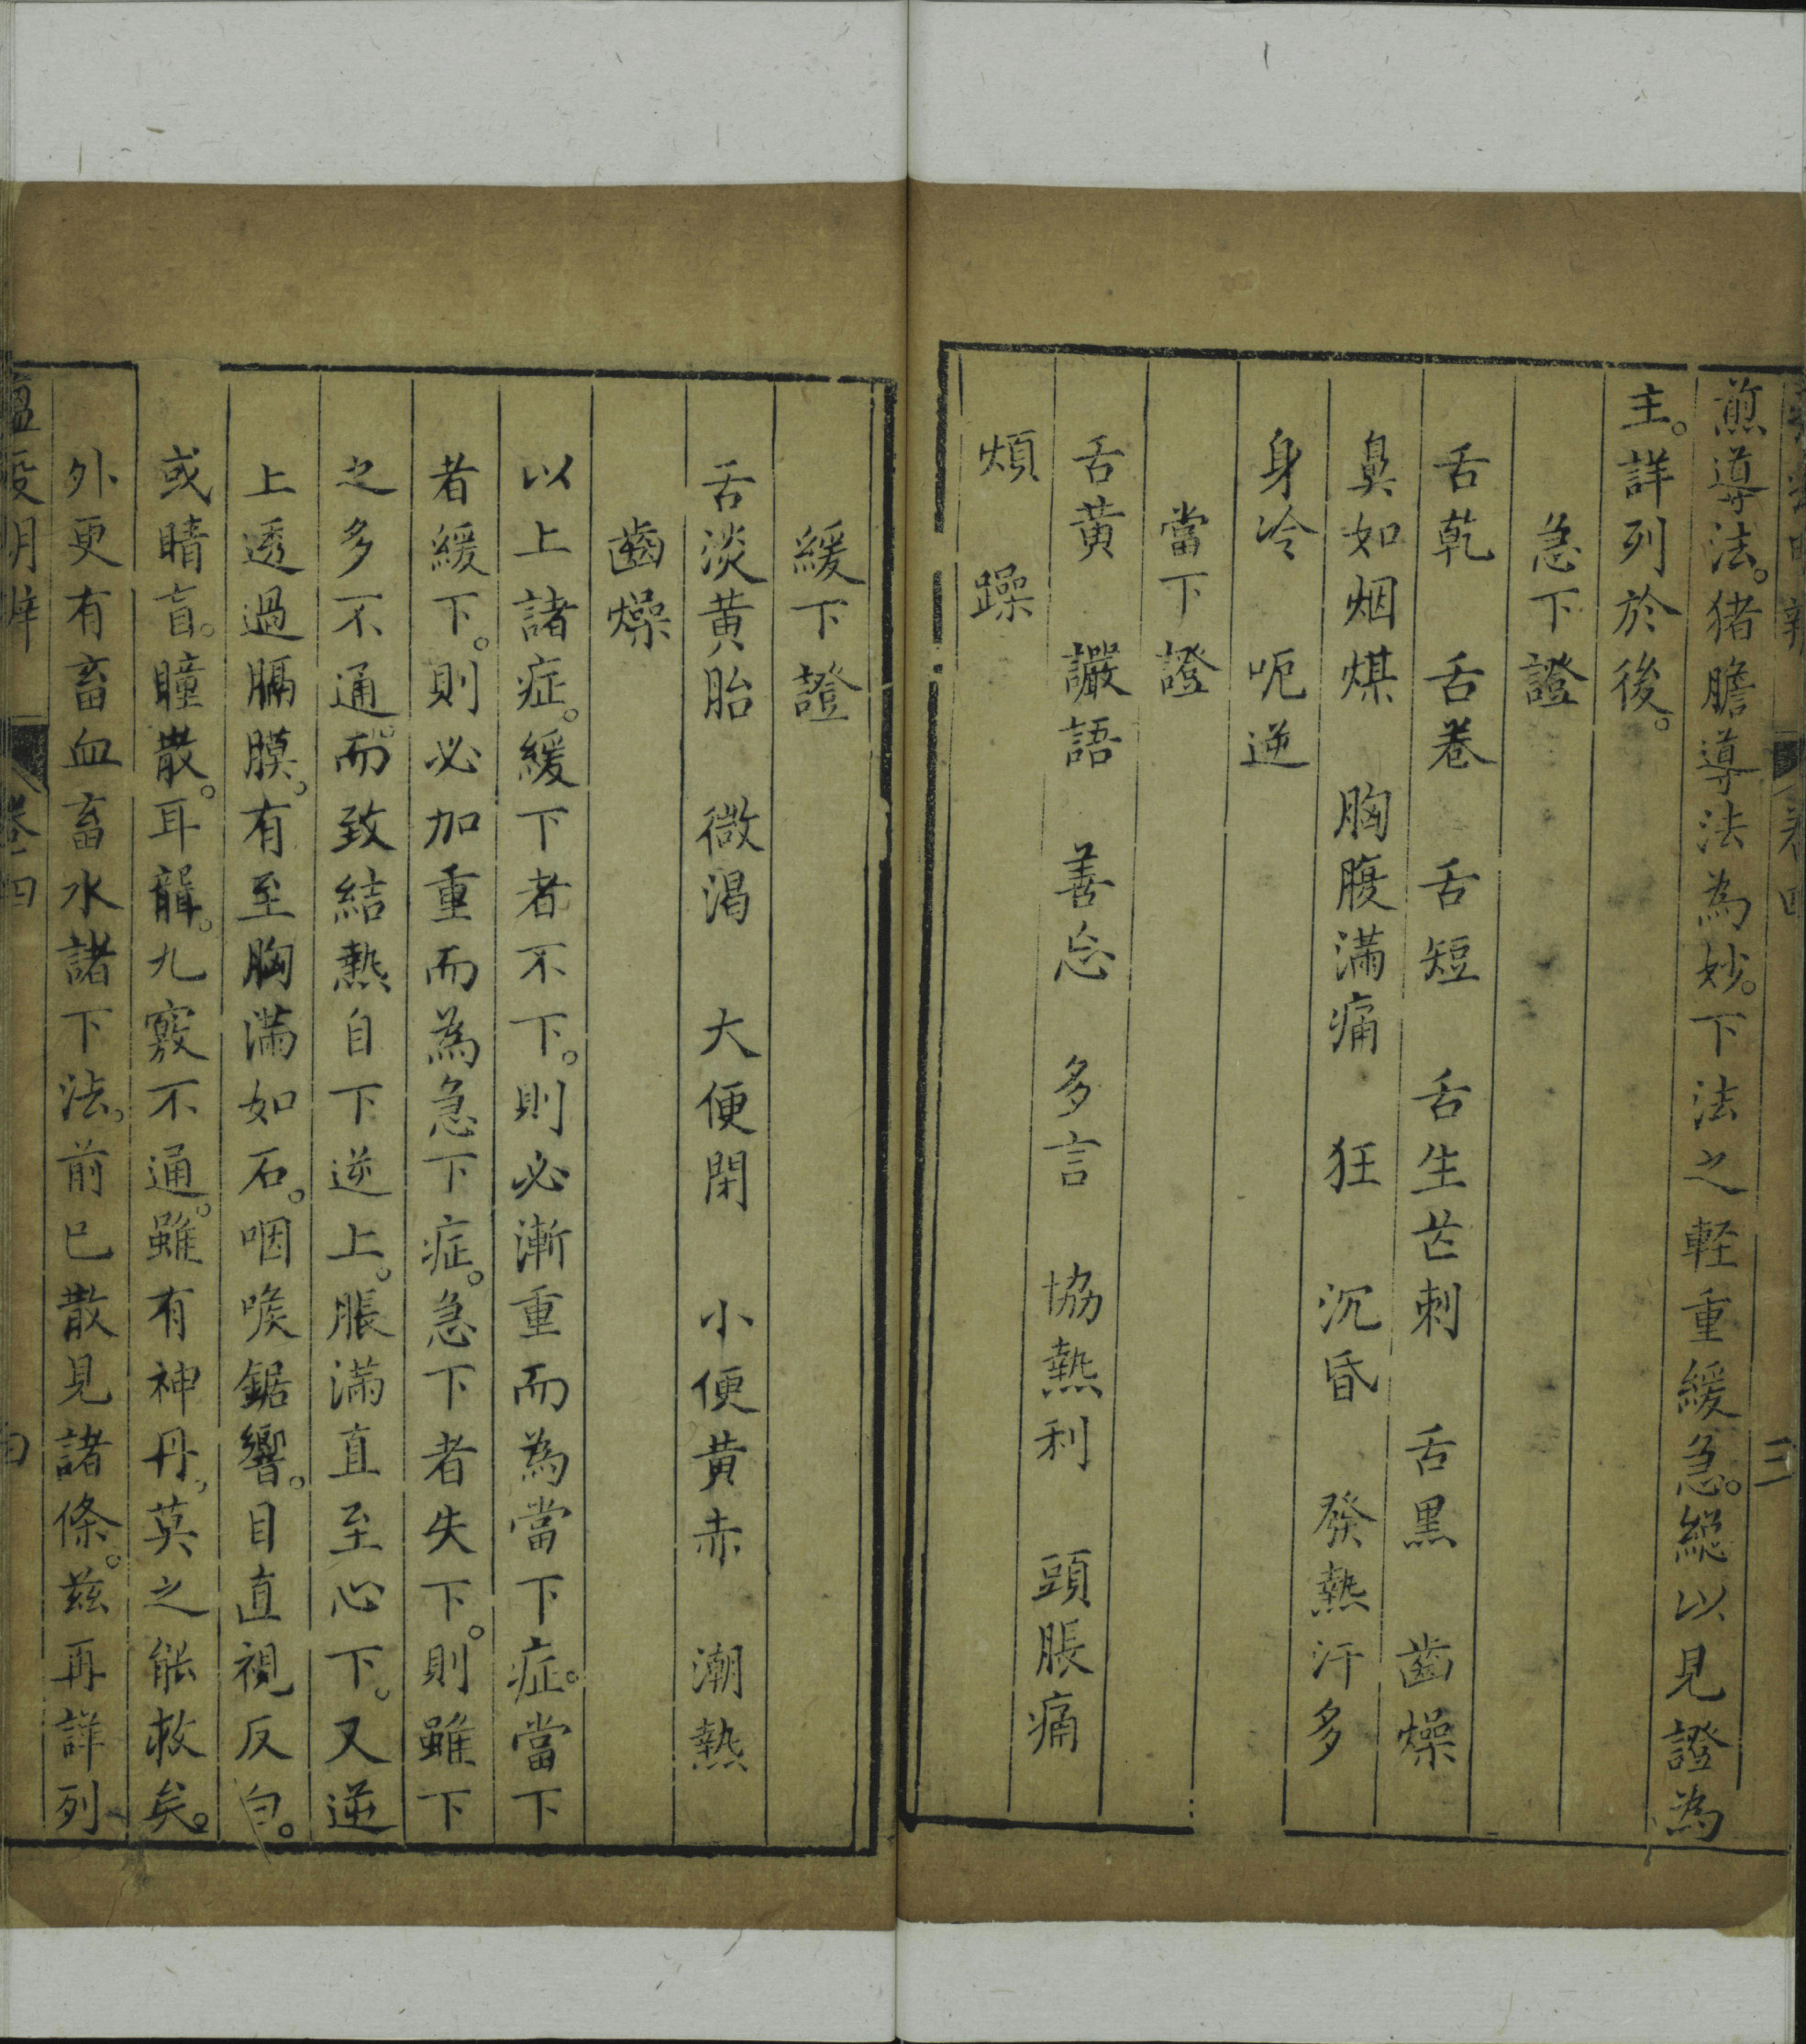 煎導法。猪膽導法為妙。下法之軽重緩急。縂以見證為
主。詳列於後。
急下證
舌乾　舌卷　舌短　舌生芒刺　舌黒　齒燥
鼻如烟煤　胸腹滿痛　狂　沉昏　發熱汗多
身冷　呃逆
當下證
舌黄　讝語　善忘　多言　協熱利　頭脹痛
煩　躁
緩下證
舌淡黄胎　微渴　大便閉　小便黄赤　潮熱
齒燥
以上諸症。緩下者不下。則必漸重而為當下症。當下
者緩下。則必加重而為急下症。急下者失下。則雖下
之多不通。而致結熱自下逆上。脹滿直至心下。又逆
上透過膈膜。有至胸滿如石。咽喉鋸響。目直視反白。
或睛盲。瞳散。耳聾。九竅不通。雖有神丹。莫之能救矣。
外更有畜血畜水諸下法。前已散見諸條。兹再詳列
卷四